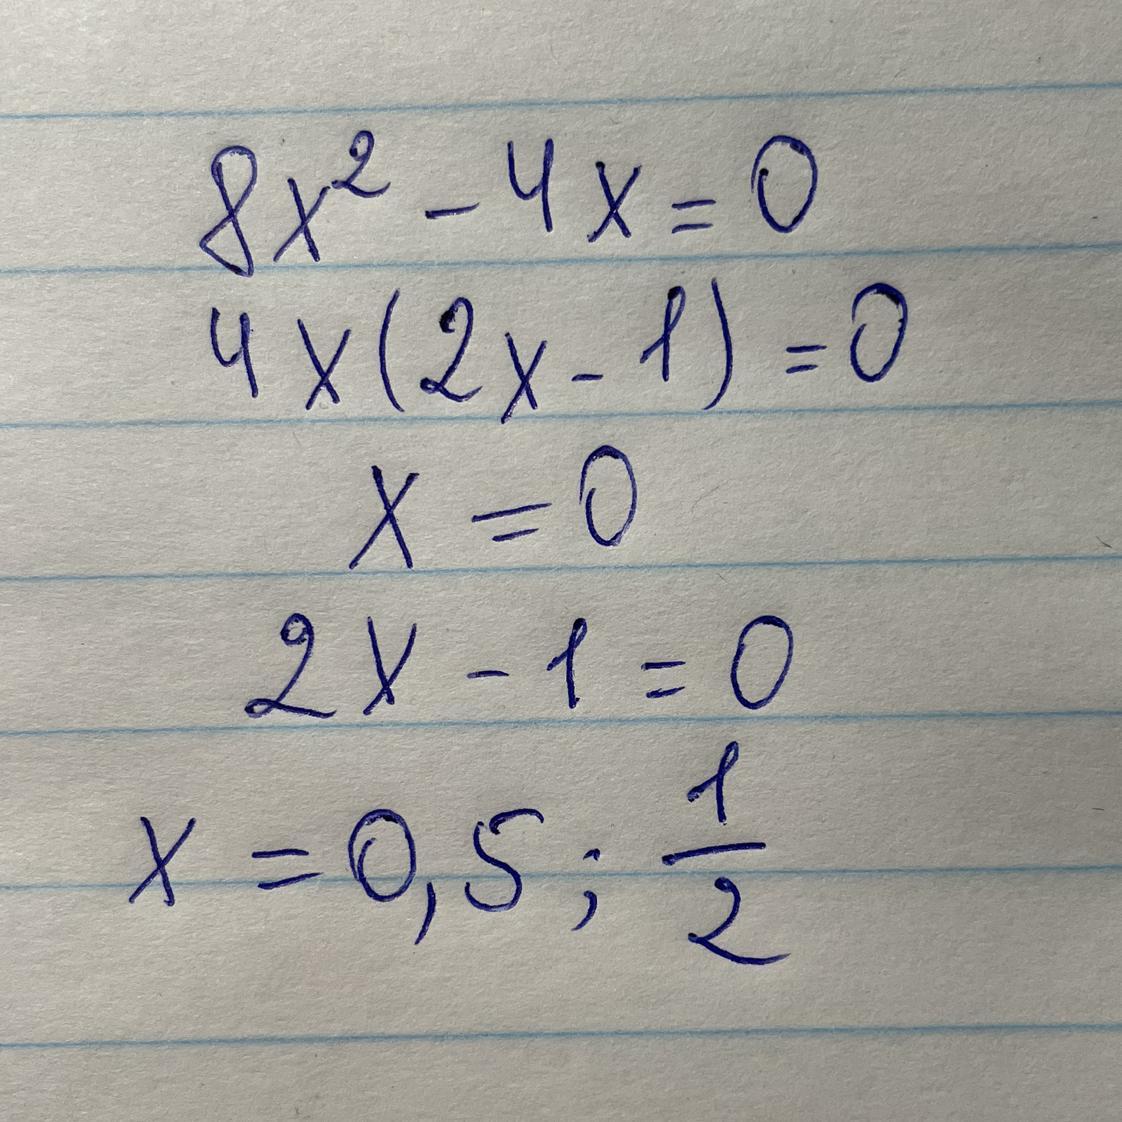 8x² - 4x = 0
4x(2x - 1) = 0
x = 0
2x - 1 = 0
x = 0,5 ; 1/2